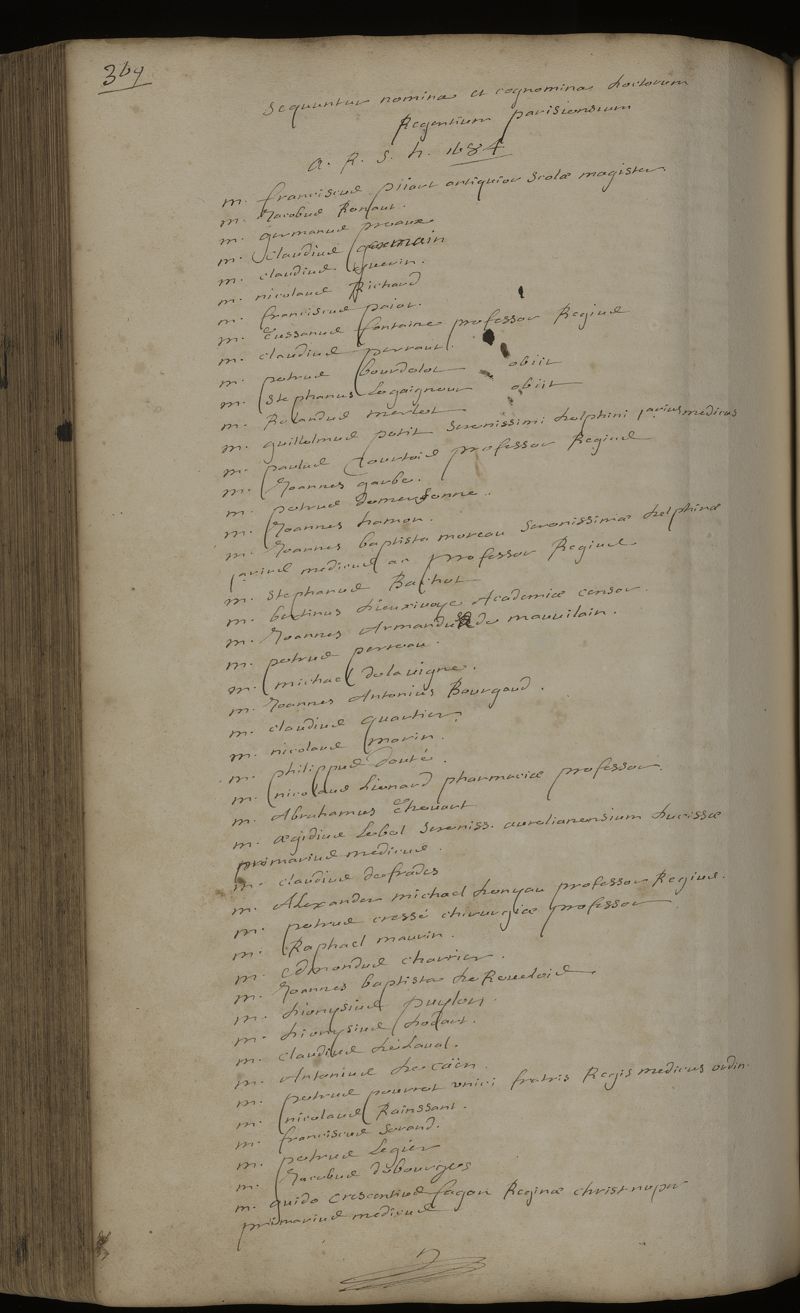 369
Sequuntur nomina et cognomina doctorum
Regentium parisiensium
a. R. S. h. 1684
m. franciscus pijart antiquior Scolæ magister
m. Jacobus Renaut.
m. germanus preaux
m. Claudius germain
m. claudius guerin.
m. nicolaus Richard
m. franciscus pajot.
m. Tussanus fontaine professor Regius
m. claudius perraut.
m. petrus bourdelot obiit
m. Stephanus Legaigneur obiit
m. Rolandus merlet
m. guillelmus petit Serenissimi delphini primarius medicus
m. paulus Courtois professor Regius
m. Joannes garbe.
m. petrus Demersenne.
m. Joannes hamon.
m. Joannes baptista moreau Serenissimæ delphinæ
primus medicus ac professor Regius
m. Stephanus Bachot
m. bertinus dieuxivoye Academiæ censor.
m. Joannes Armandus de mauvilain.
m. petrus perreau.
m. michael delavigne.
m. Joannes Antonius Bourgaud.
m. claudius quartier.
m. nicolaus morin.
m. philippus Douté.
m. nicolaus Lienard pharmaciæ professor.
m. Abrahamus Thevart
m. ægidius Lebel Sereniss. aurelianensium ducissæ
primarius medicus.
m. claudius deffrades
m. Alexander michael denyau professor Regius.
m. petrus cressé chirurgiæ professor
m. Raphael maurin.
m. Edmondus charrier.
m. Joannes baptista de Revelois
m. dionysius puylon.
m. dionysius dodart.
m. claudius de Laval.
m. Antonius de caën.
m. petrus pourret unici fratris Regis medicus ordin.
m. nicolaus Rainssant.
m. franciscus Sorand.
m. petrus Legier
m. Jacobus desbourges
m. guido crescentius fagon Reginæ christ nuper
primarius medicus